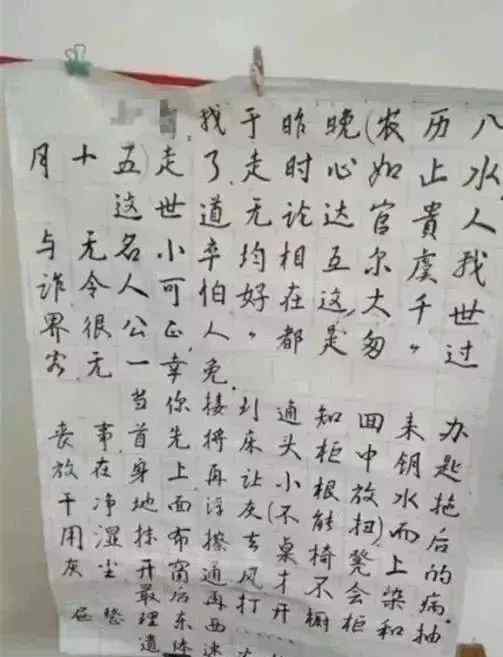 找于昨晚(农历八
月十五)走了.走时心如止水,
这世道无论达官貴人
与无名小卒均相互尔虞我
诈令人可怕好在这大千世
界很公正人〃都是匆〃过
客无一幸免.
当你接到通知回来办
丧事首先将床头柜中钥匙
放在身上再让小根放水拖
干净地面浮灰(不能扭)而后
用湿抹布擦去桌椅凳上的
灰尘开窗通风才不会染病.
最后再打开橱柜和抽
屉整理东西
遗体速